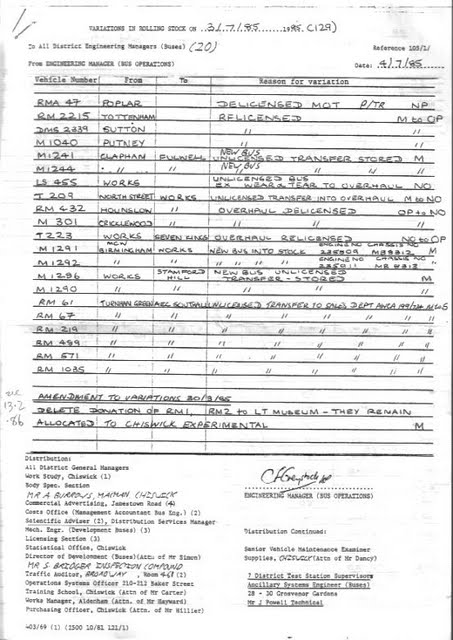 VARIATIONS IN ROLLING STOCK ON 3/7/85 1985 (129)
To All District Engineering Managers (Buses) (20) Reference 103/1/
From ENGINEERING MANAGER (BUS OPERATIONS) Date: 4/7/85
Vehicle Number From To Reason for variation
RMA 47 POPLAR DELICENSED MOT P/TR NP
RM 2215 TOTTENHAM RELICENSED M to OP
DMS 2339 SUTTON " "
M1040 PUTNEY " "
M1241 CLAPHAM FULWELL NEW BUS UNLICENSED TRANSFER STORED M
M1244 " " " NEW BUS " " "
LS 455 WORKS UNLICENSED BUS EX WEAR & TEAR TO OVERHAUL NO
T 209 NORTH STREET WORKS UNLICENSED TRANSFER INTO OVERHAUL M to NO
RM 432 HOUNSLOW " OVERHAUL DELICENSED OP to NO
M 301 CRICKLEWOOD " " " "
T223 WORKS SEVEN KINGS OVERHAUL RELICENSED NO to OP
M1291 MCW BIRMINGHAM WORKS NEW BUS INTO STOCK ENGINE NO CHASSIS NO M
M1292 " " " ENGINE NO CHASSIS NO
M1286 WORKS STAMFORD HILL NEW BUS UNLICENSED TRANSFER - STORED M
M1290 " " " " "
RM 61 TURNHAM GREEN AEC SOUTHALL UNLICENSED TRANSFER TO SALES DEPT
RM 67 " " " " " " "
RM 219 " " " " " " "
RM 499 " " " " " " "
RM 571 " " " " " " "
RM 1035 " " " " " " "
AMENDMENT TO VARIATIONS 30/3/85
DELETE DONATION OF RM1, RM2 TO LT MUSEUM - THEY REMAIN
ALLOCATED TO CHISWICK EXPERIMENTAL M
13-2
-86
Distribution:
All District General Managers
Work Study, Chiswick (1)
Body Spec. Section
MR A BURROWS, CHISWICK
Commercial Advertising, Jamestown Road (4)
Costs Office (Management Accountant Bus Eng.) (2)
Scientific Adviser (2), Distribution Services Manager
Mech. Engr. (Development Buses) (3)
Licensing Section (3)
Statistical Office, Chiswick
Director of Development (Buses)(Attn. of Mr Simon)
MR S BRIDGER INSPECTION COMPOUND
Traffic Auditor, BROADWAY, Room 463 (2)
Operations Systems Officer 210-212 Baker Street
Training School, Chiswick (Attn of Mr Carter)
Works Manager, Aldenham (Attn of Mr Hayward)
Purchasing Officer, Chiswick (Attn of Mr Hillier)
403/69 (1) (2500 10/81 121/1)
ENGINEERING MANAGER (BUS OPERATIONS)
Distribution Continued:
Senior Vehicle Maintenance Examiner
Supplies, CHISWICK (Attn of Mr Dancy)
7 District Test Station Supervisors
Ancillary Systems Engineer (Buses)
28 - 30 Grosvenor Gardens
Mr J Powell Technical